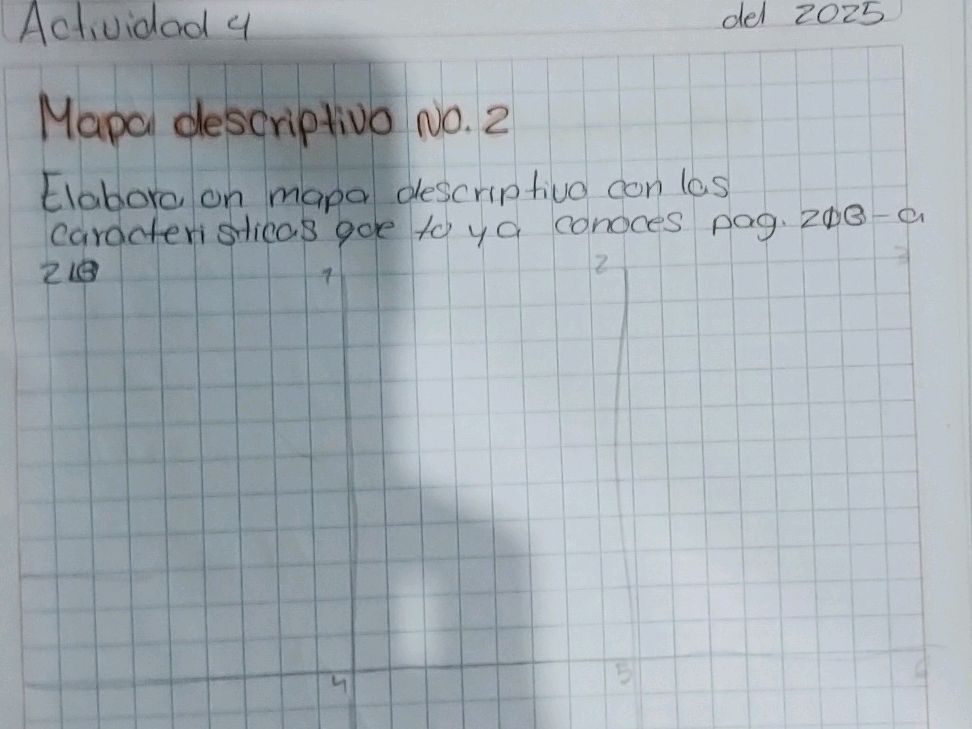 Actividad 4
del 2025
Mapa descriptivo No. 2
Elabora un mapa descriptivo con las
caracteristicas que tu ya conoces pag. - a
1 2 3
4 5 6